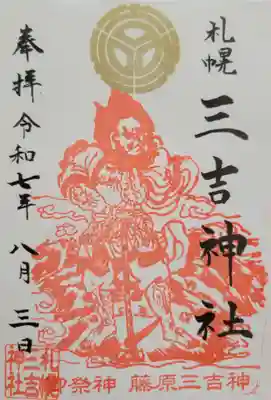 札幌
三吉神社
奉拝 令和七年 八月 三日
御祭神 藤原三吉神